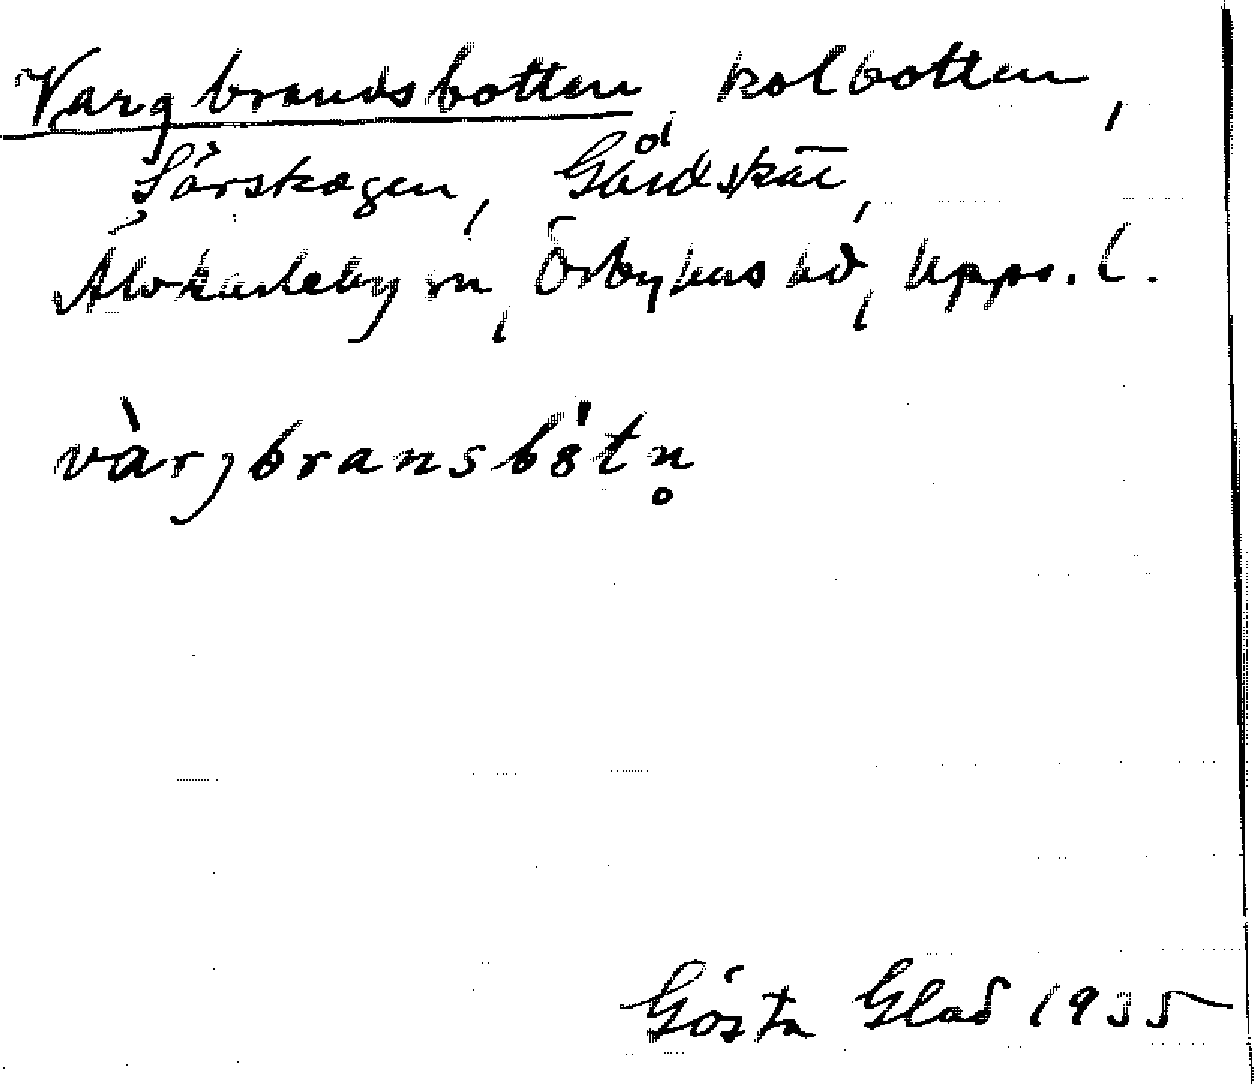 Vargbrandsbotten, kolbotten,
Sörskogen, Gårdskär,
Älvkarleby sn, Örbyhus hd, Upps. l.
vàrjbransbòtn̥
Gösta Glad 1935